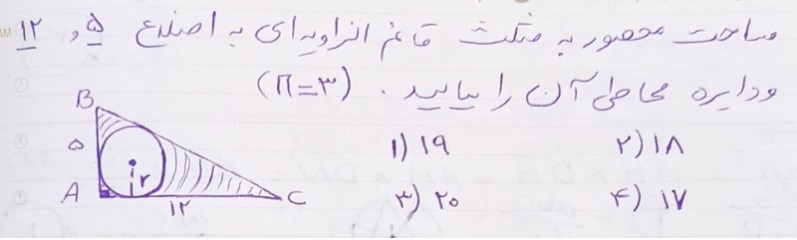 مساحت محصور به مثلث قائم الزاویه‌ای به اضلاع ۵ و ۱۲
و دایره محاطی آن را بیابید. (π=۳)
۱) ۱۹ ۲) ۱۸
۳) ۲۰ ۴) ۱۷
B
۵
r
A
۱۲
C